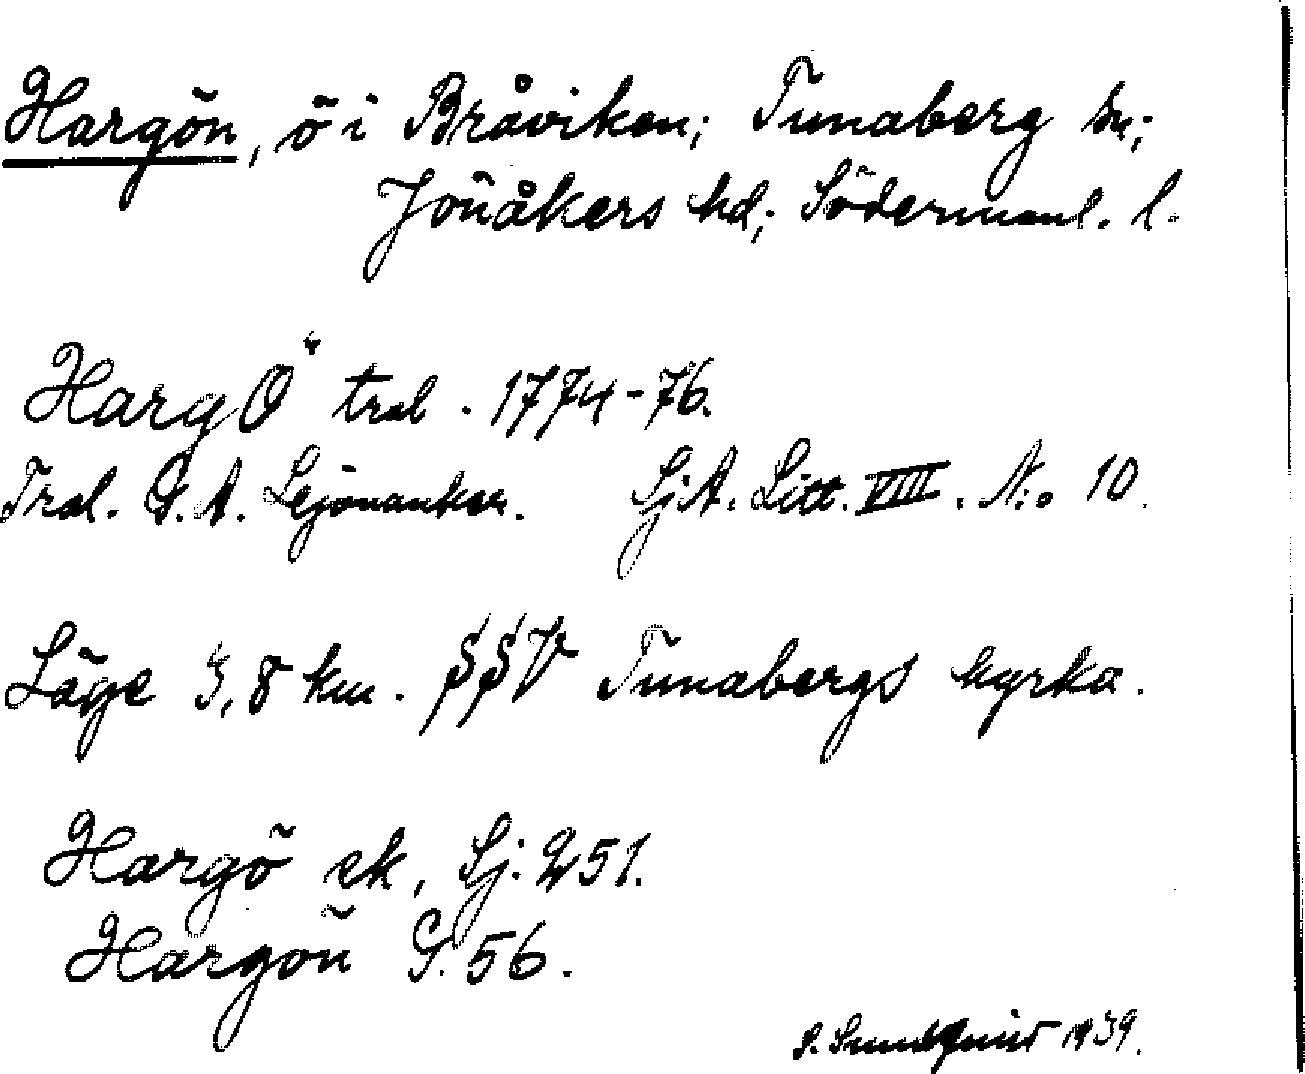 Hargön, ö i Bråviken; Tunaberg sn;
Jönåkers hd; Södermanl. l.
HargÖ tral. 1774-76.
Tral. G. A. Lejonanker. SjA. Litt. VIII. N:o 10.
Läge 3,8 km. SSV Tunabergs kyrka.
Hargö ek, Sj. 251.
Hargön G. 56.
S. Sundquist 1939.